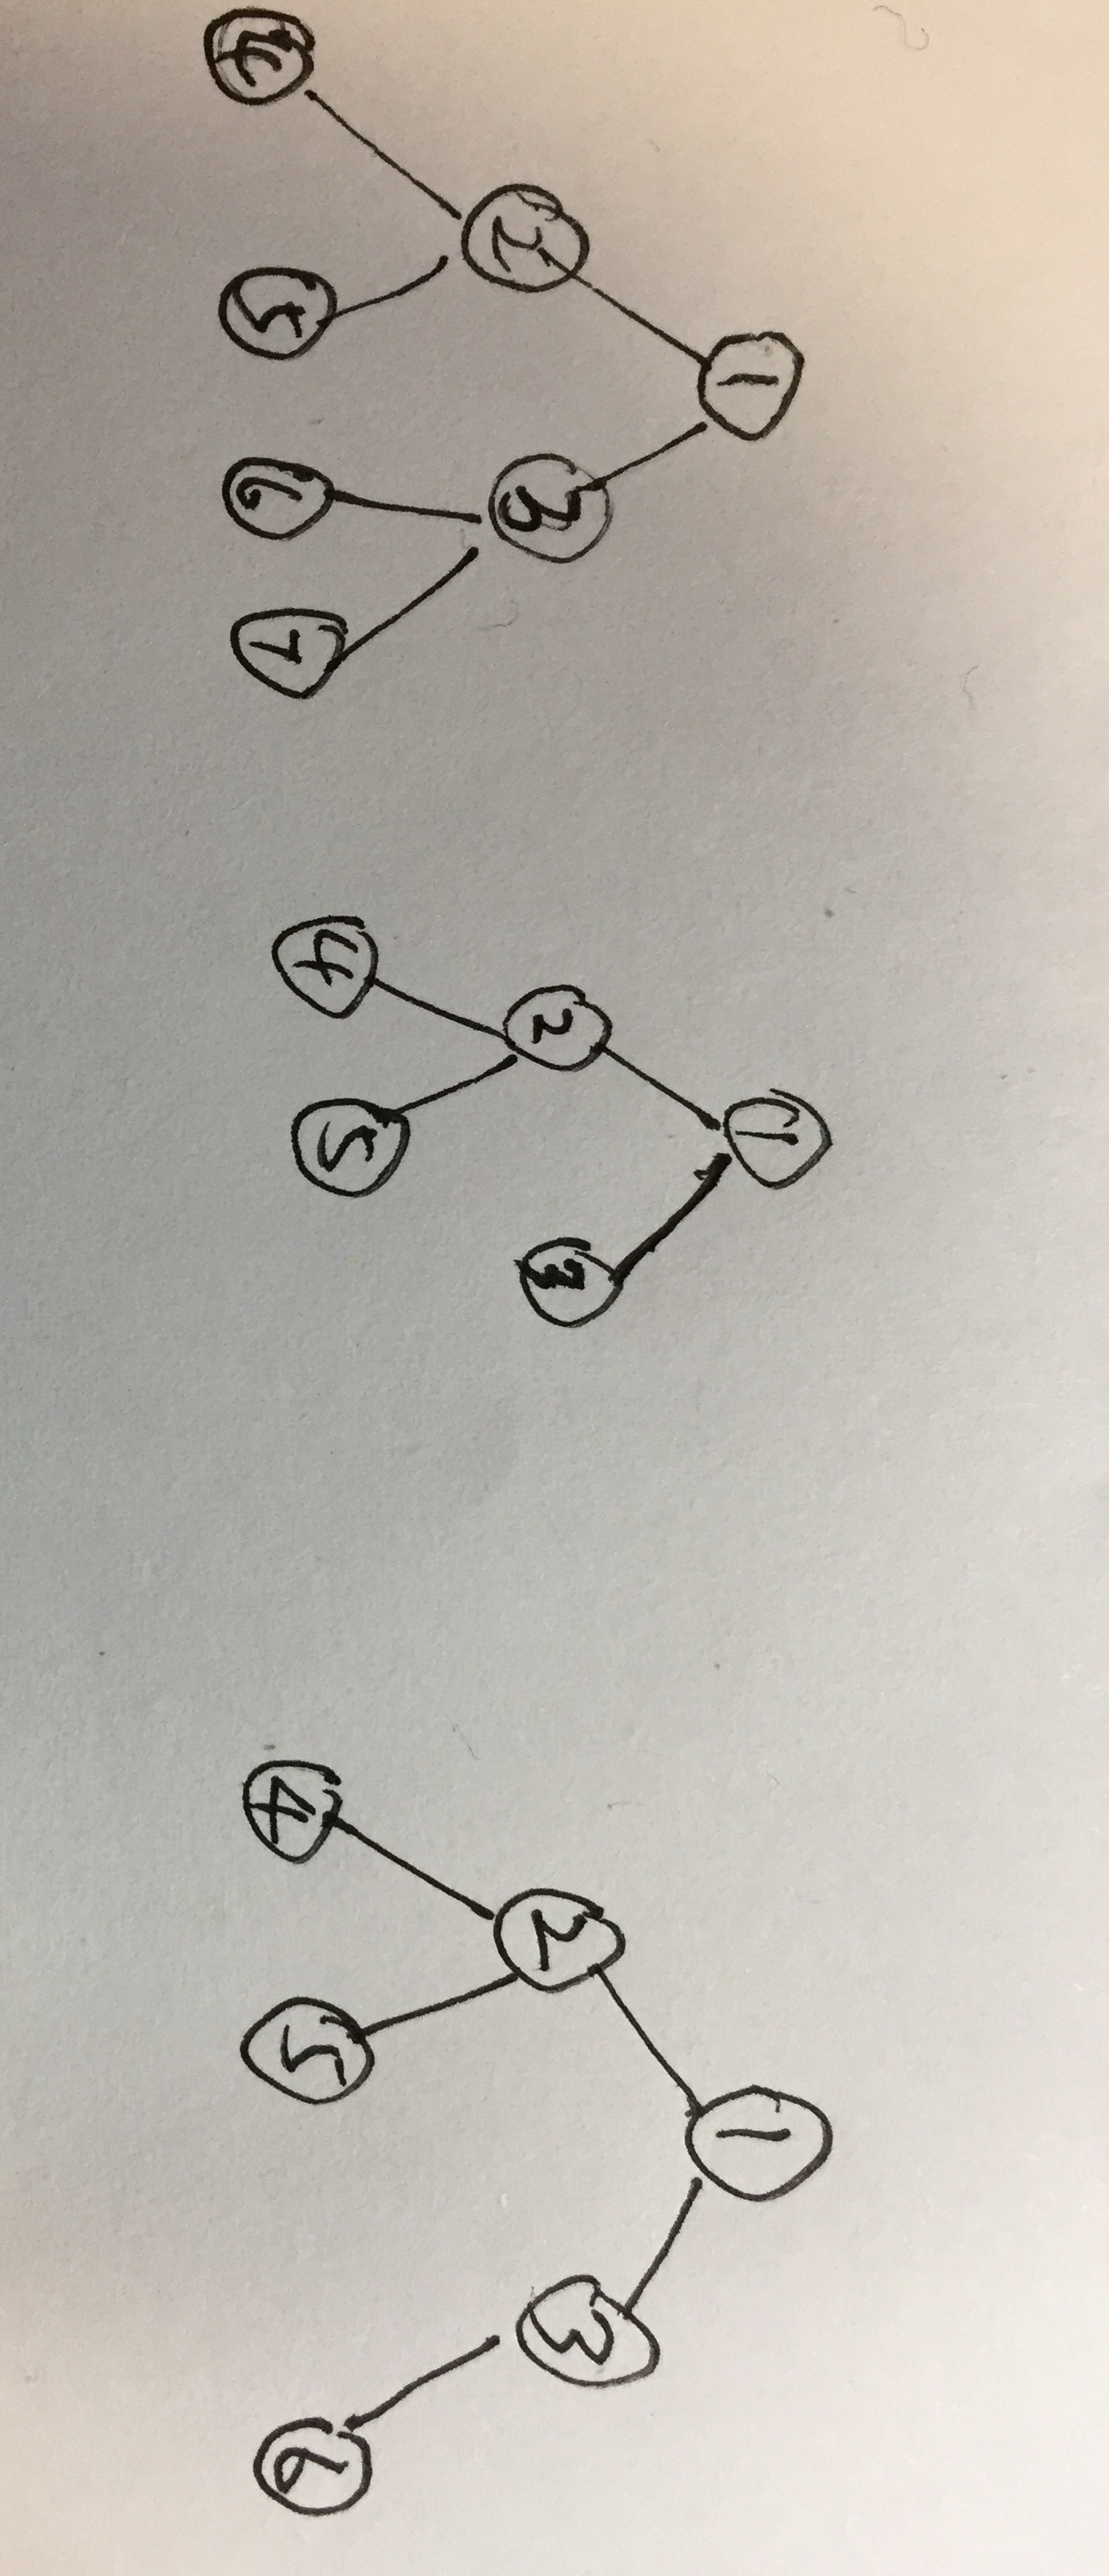 1
2 3
4 5 6 7
1
2 3
4 5
1
2 3
4 5 6